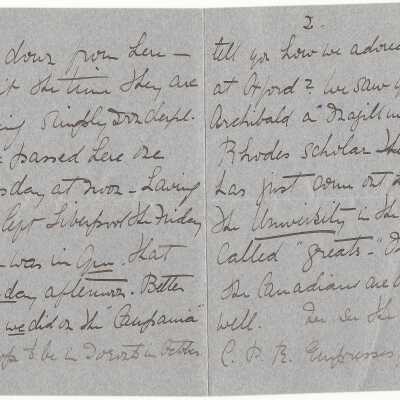 down from here –
the time they are
simply wonderful.
passed here one
day at noon – having
left Liverpool the Friday
was in Gpn. that
day afternoon. Better
we did on the "Campania"
to be in Toronto in October
2.
tell you how we adored
at Oxford? We saw
Archibald a McGill
Rhodes Scholar – He
has just come out
the University in the
called "Greats" –
the Canadians are
well. the
C. P. R. Empresses